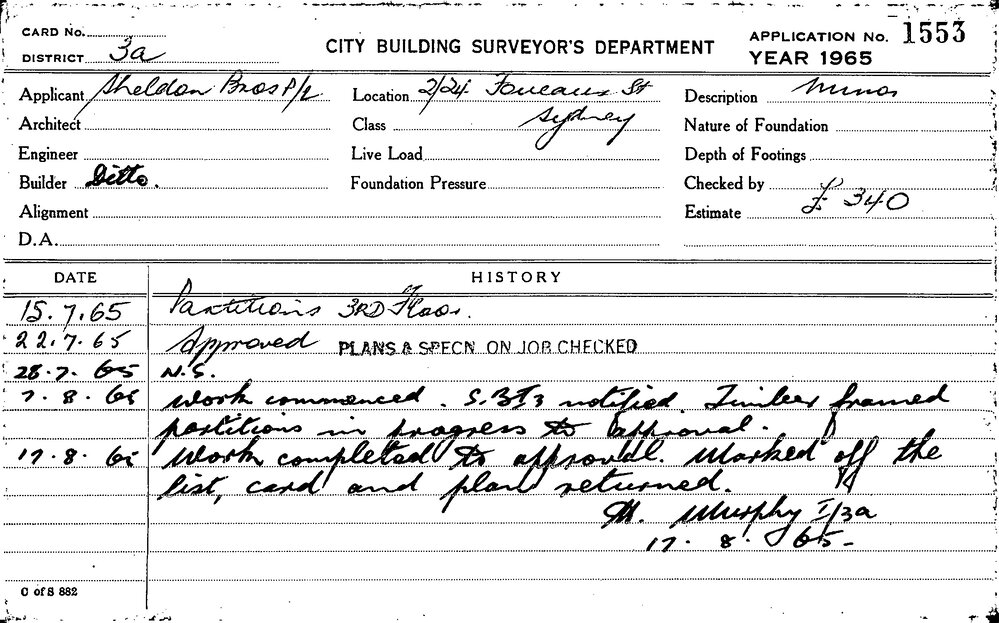 CARD No.
DISTRICT 3a
CITY BUILDING SURVEYOR'S DEPARTMENT
APPLICATION No. 1553
YEAR 1965
Applicant Sheldon Bros P/L
Location 2/24 Foveaux St
Sydney
Description Minor
Architect
Class
Nature of Foundation
Engineer
Live Load
Depth of Footings
Builder Ditto.
Foundation Pressure
Checked by
Alignment
Estimate £ 340
D.A.
DATE HISTORY
15.7.65 Partitions 3RD Floor.
22.7.65 Approved PLANS & SPECN ON JOB CHECKED
28.7.65 N.S.
7.8.65 Work commenced. notified. Timber framed
partitions in progress to approval.
17.8.65 Work completed to approval. Marked off the
list, card and plan returned.
M. Murphy I/3a
17.8.65
C of S 882